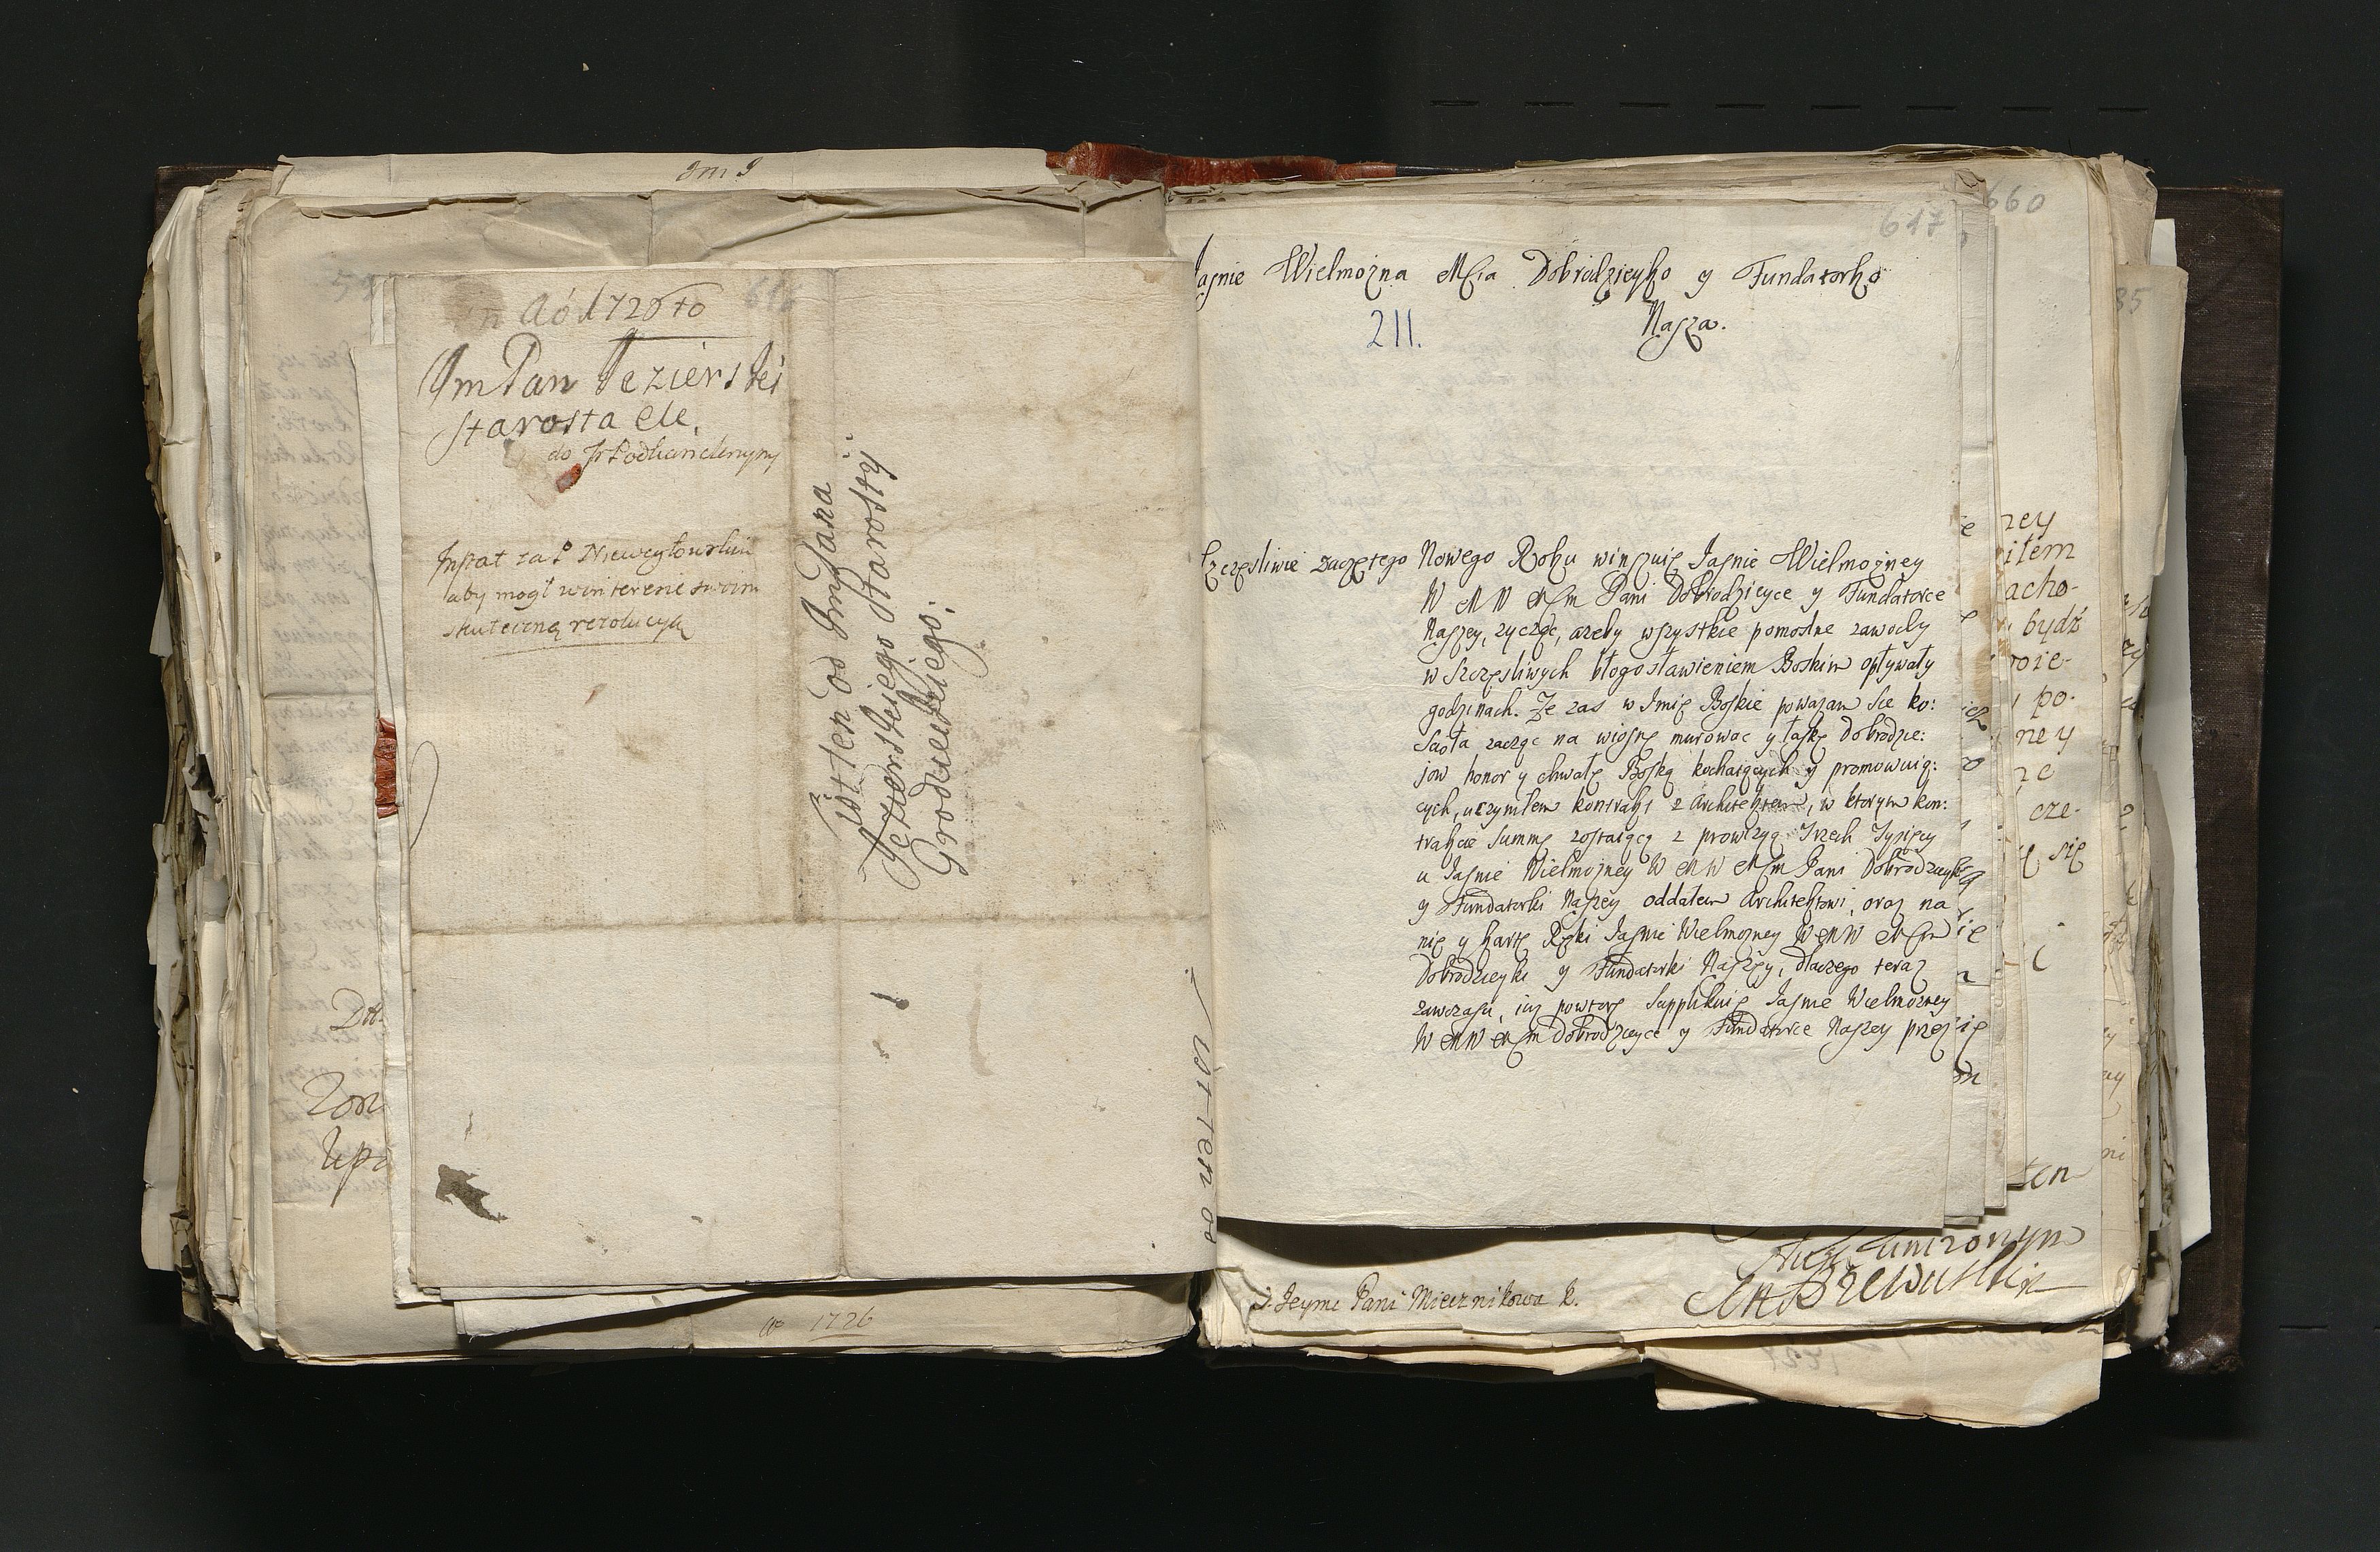 616
Im Pan Jezierski
Starosta
do
Instat za P Niewegłowskim
aby mogł w interenie swoim
skuteczną rezolucyą
List ten od Jmp Pana
Jezierskiego Starosty
Grodueskiego:
w 1726
617
660
Jasnie Wielmożna Mcia Dobrodzieyko y Fundatorko
Nasza.
211.
Szczęsliwie zaczętego Nowego Roku winszuię Jasnie Wielmożney
W M W Mcm Pani Dobrodzieyce y Fundatorce
Naszey, zycząc, azeby wszystkie pomoslne zawody
w szczęsliwych błogosławieniem Boskim opływały
godzinach. Ze zas w Imię Boskie powazam sie ko:
sciola zacząc na wiosnę murowac y łaskę Dobrodzie:
jow honor y chwałę Boską kochaiących y promowuią:
cych, uczyniłem kontrakt z Architektem, w ktorym kon:
trakcie summę zostaiącą z prowizyą Trzech Tysięcy
u Jasnie Wielmożney W M W Mcm Pani Dobrodzieyki
y Fundatorki Naszey oddałem Architektowi, oraz na
nię y kartę Ręki Jasnie Wielmożney W M W Mcm
Dobrodzieyki y Fundatorki Naszey, dlaczego teraz
zawczasu, iuz powtorę supplikuię Jasnie Wielmożney
W M W Mcm Dobrodzieyce y Fundatorce Naszey przez
Jeymc Pani Miecznikowa K.